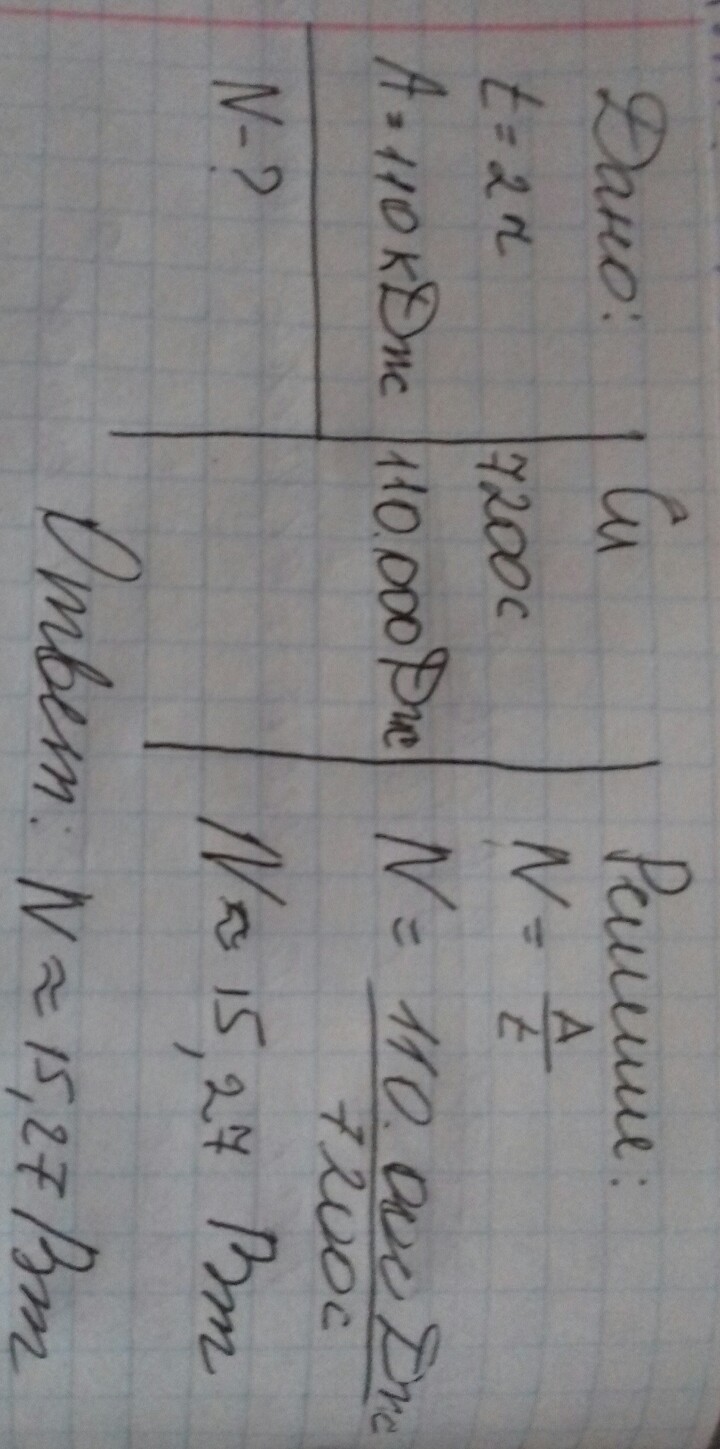 Дано:
t = 2 ч
A = 110 кДж
N - ?
Си
7200с
110.000Дж
Решение:
N = A/t
N = 110.000 Дж / 7200с
N ≈ 15,27 Вт
Ответ: N ≈ 15,27 Вт